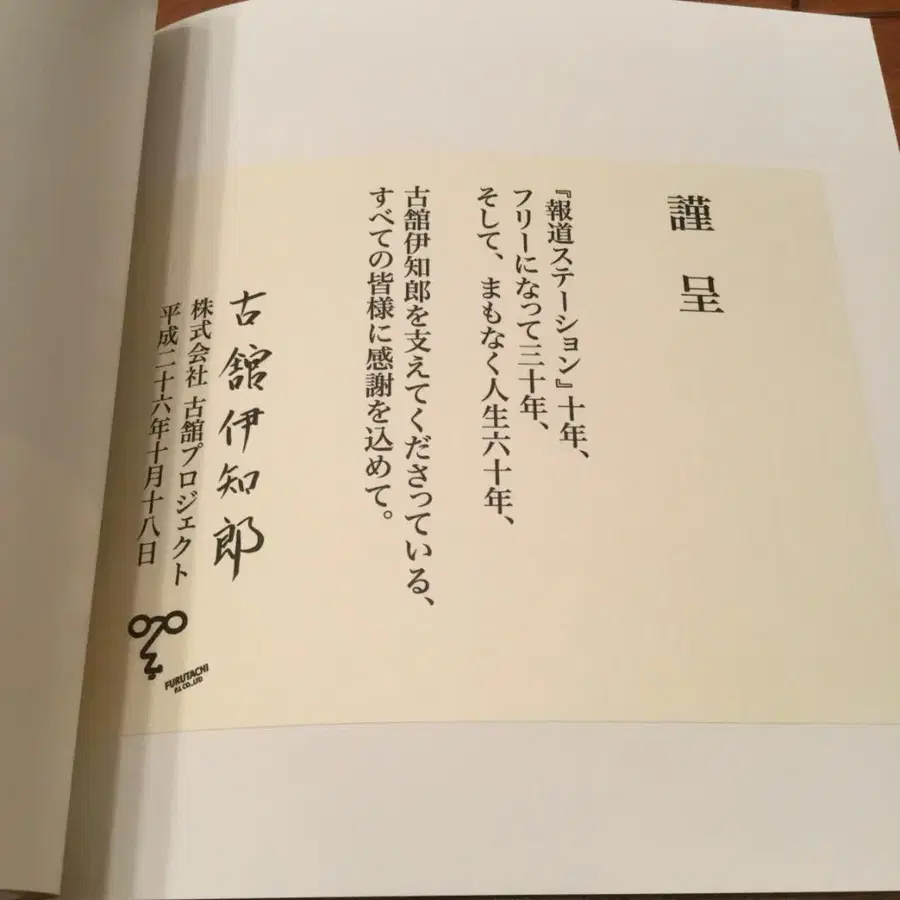 謹呈
『報道ステーション』十年、
フリーになって三十年、
そして、まもなく人生六十年、
古舘伊知郎を支えてくださっている、
すべての皆様に感謝を込めて。
古舘伊知郎
株式会社 古舘プロジェクト
平成二十六年十月十八日
FURUTACHI
PJ. CO., LTD